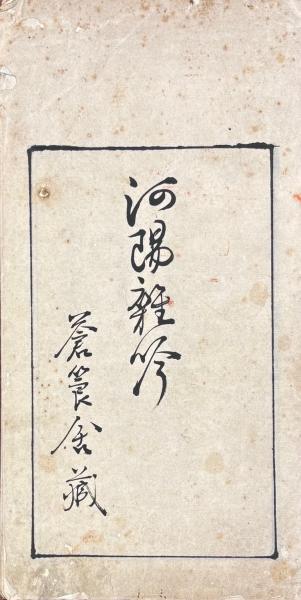 河陽雜吟
蒼筤居藏